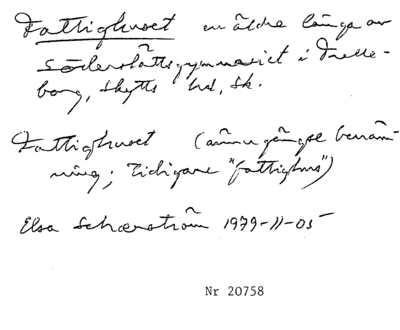 Fattighuset en äldre länga av
Söderslättsgymnasiet i Trelle-
borg, Skytts hd, Sk.
Fattighuset (ännu gängse benäm-
ning; tidigare "fattighus")
Elsa Scharström 1979-11-05
Nr 20758